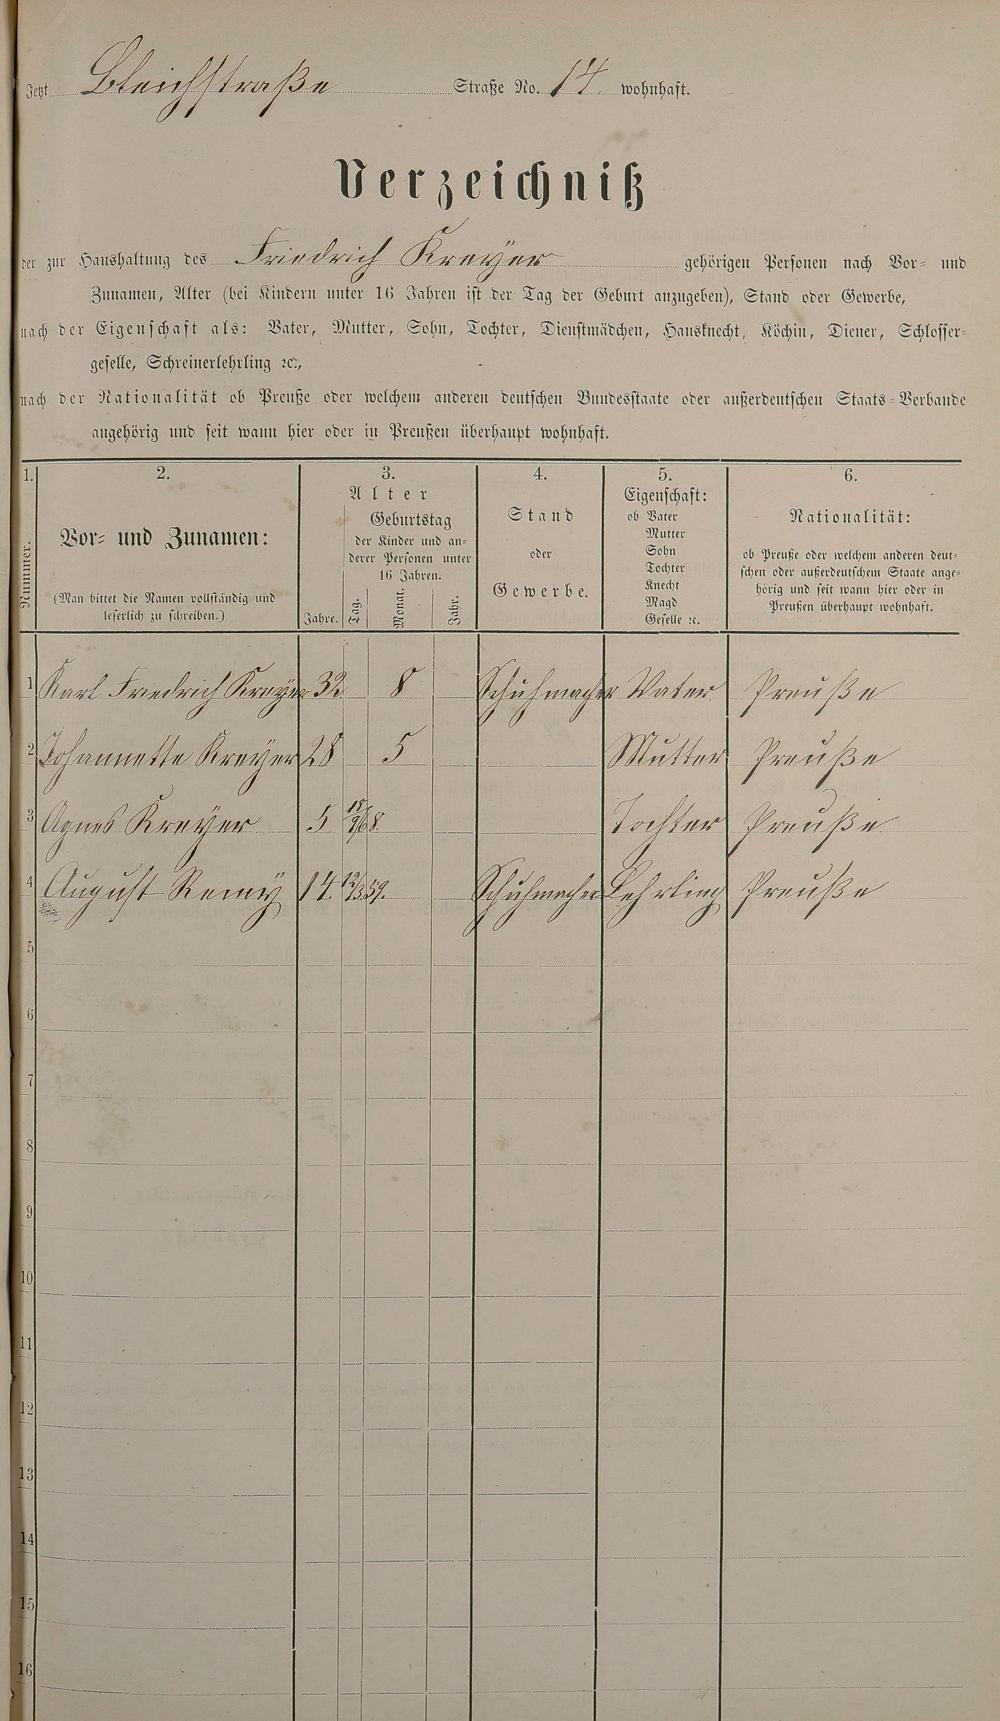 Jetzt Bleichstraße Straße No. 14. wohnhaft.
Verzeichniß
der zur Haushaltung des Friedrich Kreyer gehörigen Personen nach Vor- und
Zunamen, Alter (bei Kindern unter 16 Jahren ist der Tag der Geburt anzugeben), Stand oder Gewerbe,
nach der Eigenschaft als: Vater, Mutter, Sohn, Tochter, Dienstmädchen, Hausknecht, Köchin, Diener, Schlosser-
geselle, Schreinerlehrling ꝛc.,
nach der Nationalität ob Preuße oder welchem anderen deutschen Bundesstaate oder außerdeutschen Staats-Verbande
angehörig und seit wann hier oder in Preußen überhaupt wohnhaft.
1. 2. 3. 4. 5. 6.
Nummer.
Vor- und Zunamen:
(Man bittet die Namen vollständig und
leserlich zu schreiben.)
Alter
Geburtstag
der Kinder und an-
derer Personen unter
16 Jahren.
Jahre. Tag. Monat. Jahr.
Stand
oder
Gewerbe.
Eigenschaft:
ob Vater
Mutter
Sohn
Tochter
Knecht
Magd
Geselle ꝛc.
Nationalität:
ob Preuße oder welchem anderen deut-
schen oder außerdeutschem Staate ange-
hörig und seit wann hier oder in
Preußen überhaupt wohnhaft.
1 Karl Friedrich Kreyer 32 8 Schuhmacher Vater Preuße
2 Johannette Kreyer 28 5 Mutter Preuße
3 Agnes Kreyer 5 18/9 68. Tochter Preuße
4 August Remy 14. 12/3 59. Schuhmacher Lehrling Preuße
5
6
7
8
9
10
11
12
13
14
15
16